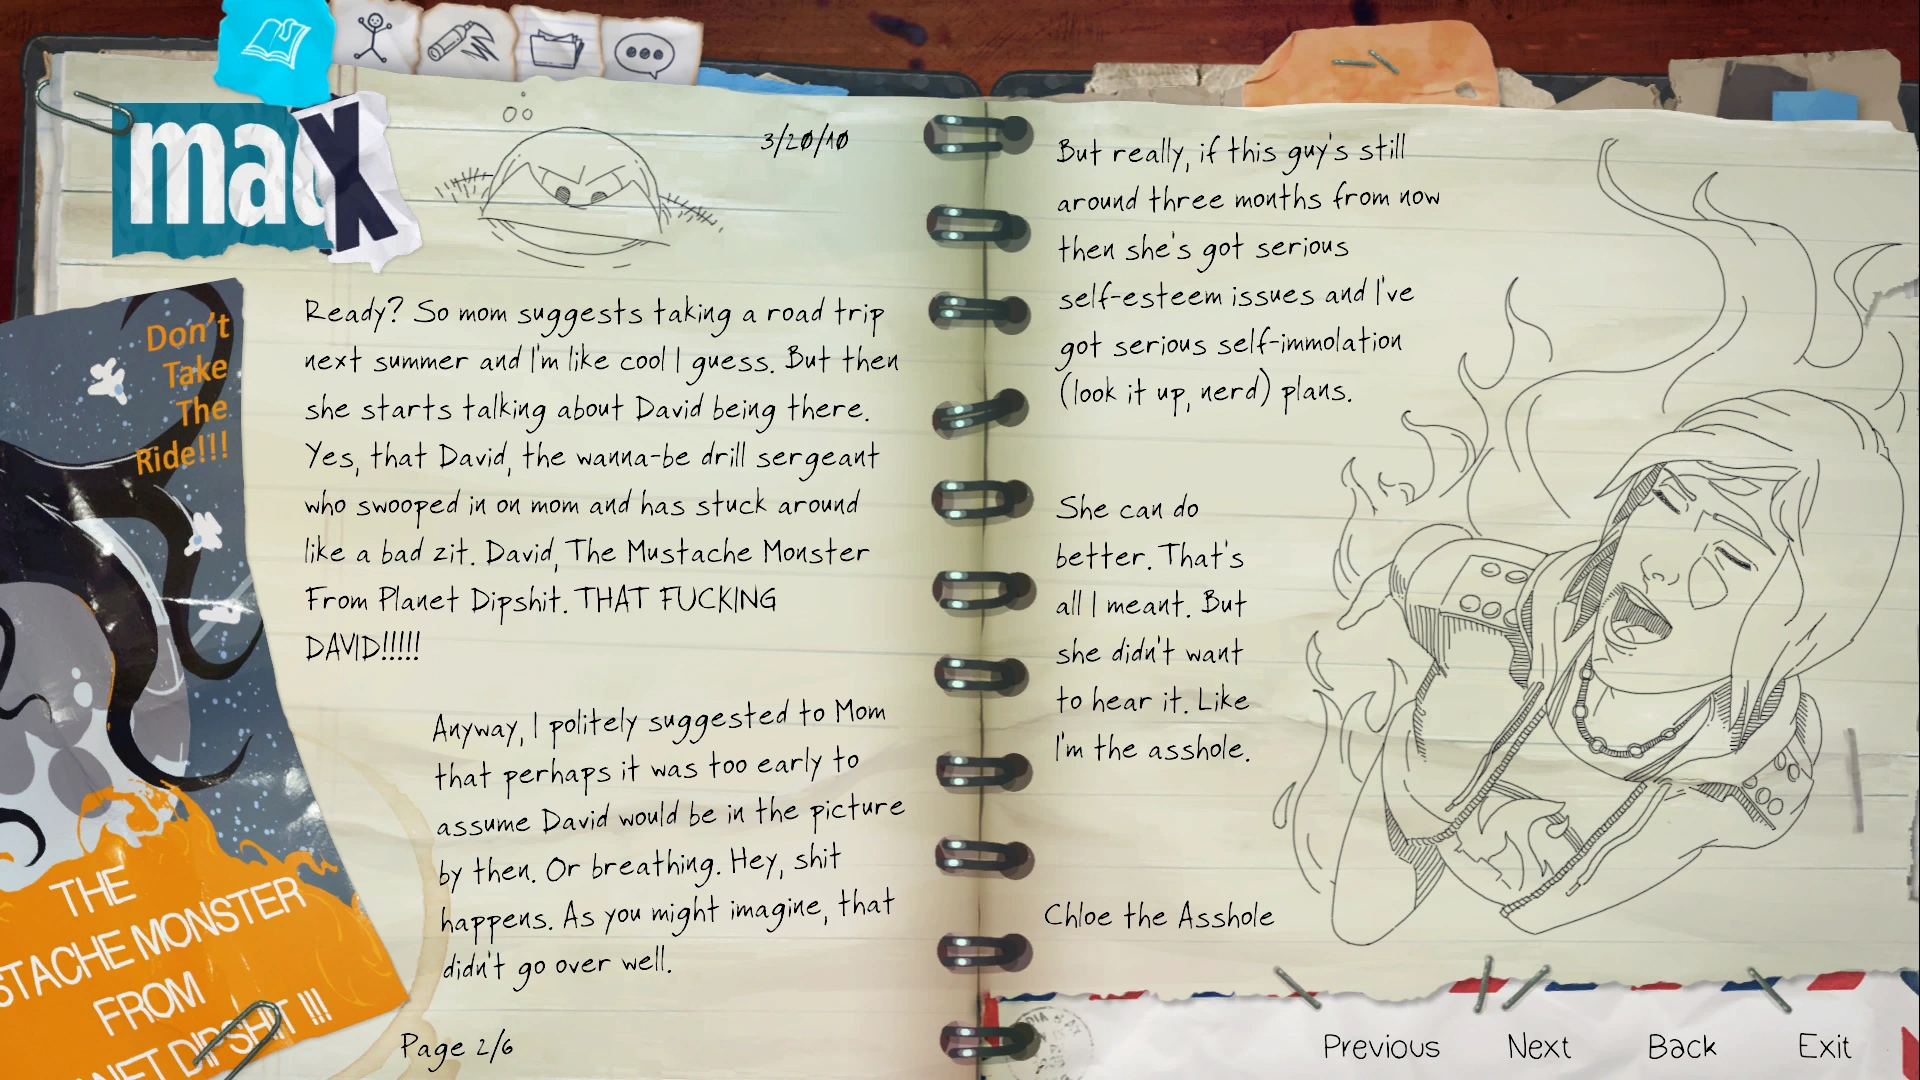 max
3/20/10
Don't
Take
The
Ride!!!
Ready? So mom suggests taking a road trip
next summer and I'm like cool I guess. But then
she starts talking about David being there.
Yes, that David, the wanna-be drill sergeant
who swooped in on mom and has stuck around
like a bad zit. David, The Mustache Monster
From Planet Dipshit. THAT FUCKING
DAVID!!!!!
Anyway, I politely suggested to Mom
that perhaps it was too early to
assume David would be in the picture
by then. Or breathing. Hey, shit
happens. As you might imagine, that
didn't go over well.
THE
STACHE MONSTER
FROM
NET DIPSHIT !!!
Page 2/6
But really, if this guy's still
around three months from now
then she's got serious
self-esteem issues and I've
got serious self-immolation
(look it up, nerd) plans.
She can do
better. That's
all I meant. But
she didn't want
to hear it. Like
I'm the asshole.
Chloe the Asshole
Previous Next Back Exit